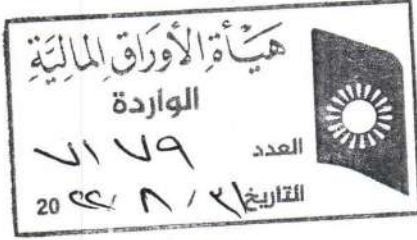 هَيْأَةُ الأَوْرَاقِ المَالِيَّةِ
الواردة
العدد ٧١٧٩
التاريخ ٣١ / ٨ / ٢٢ 20